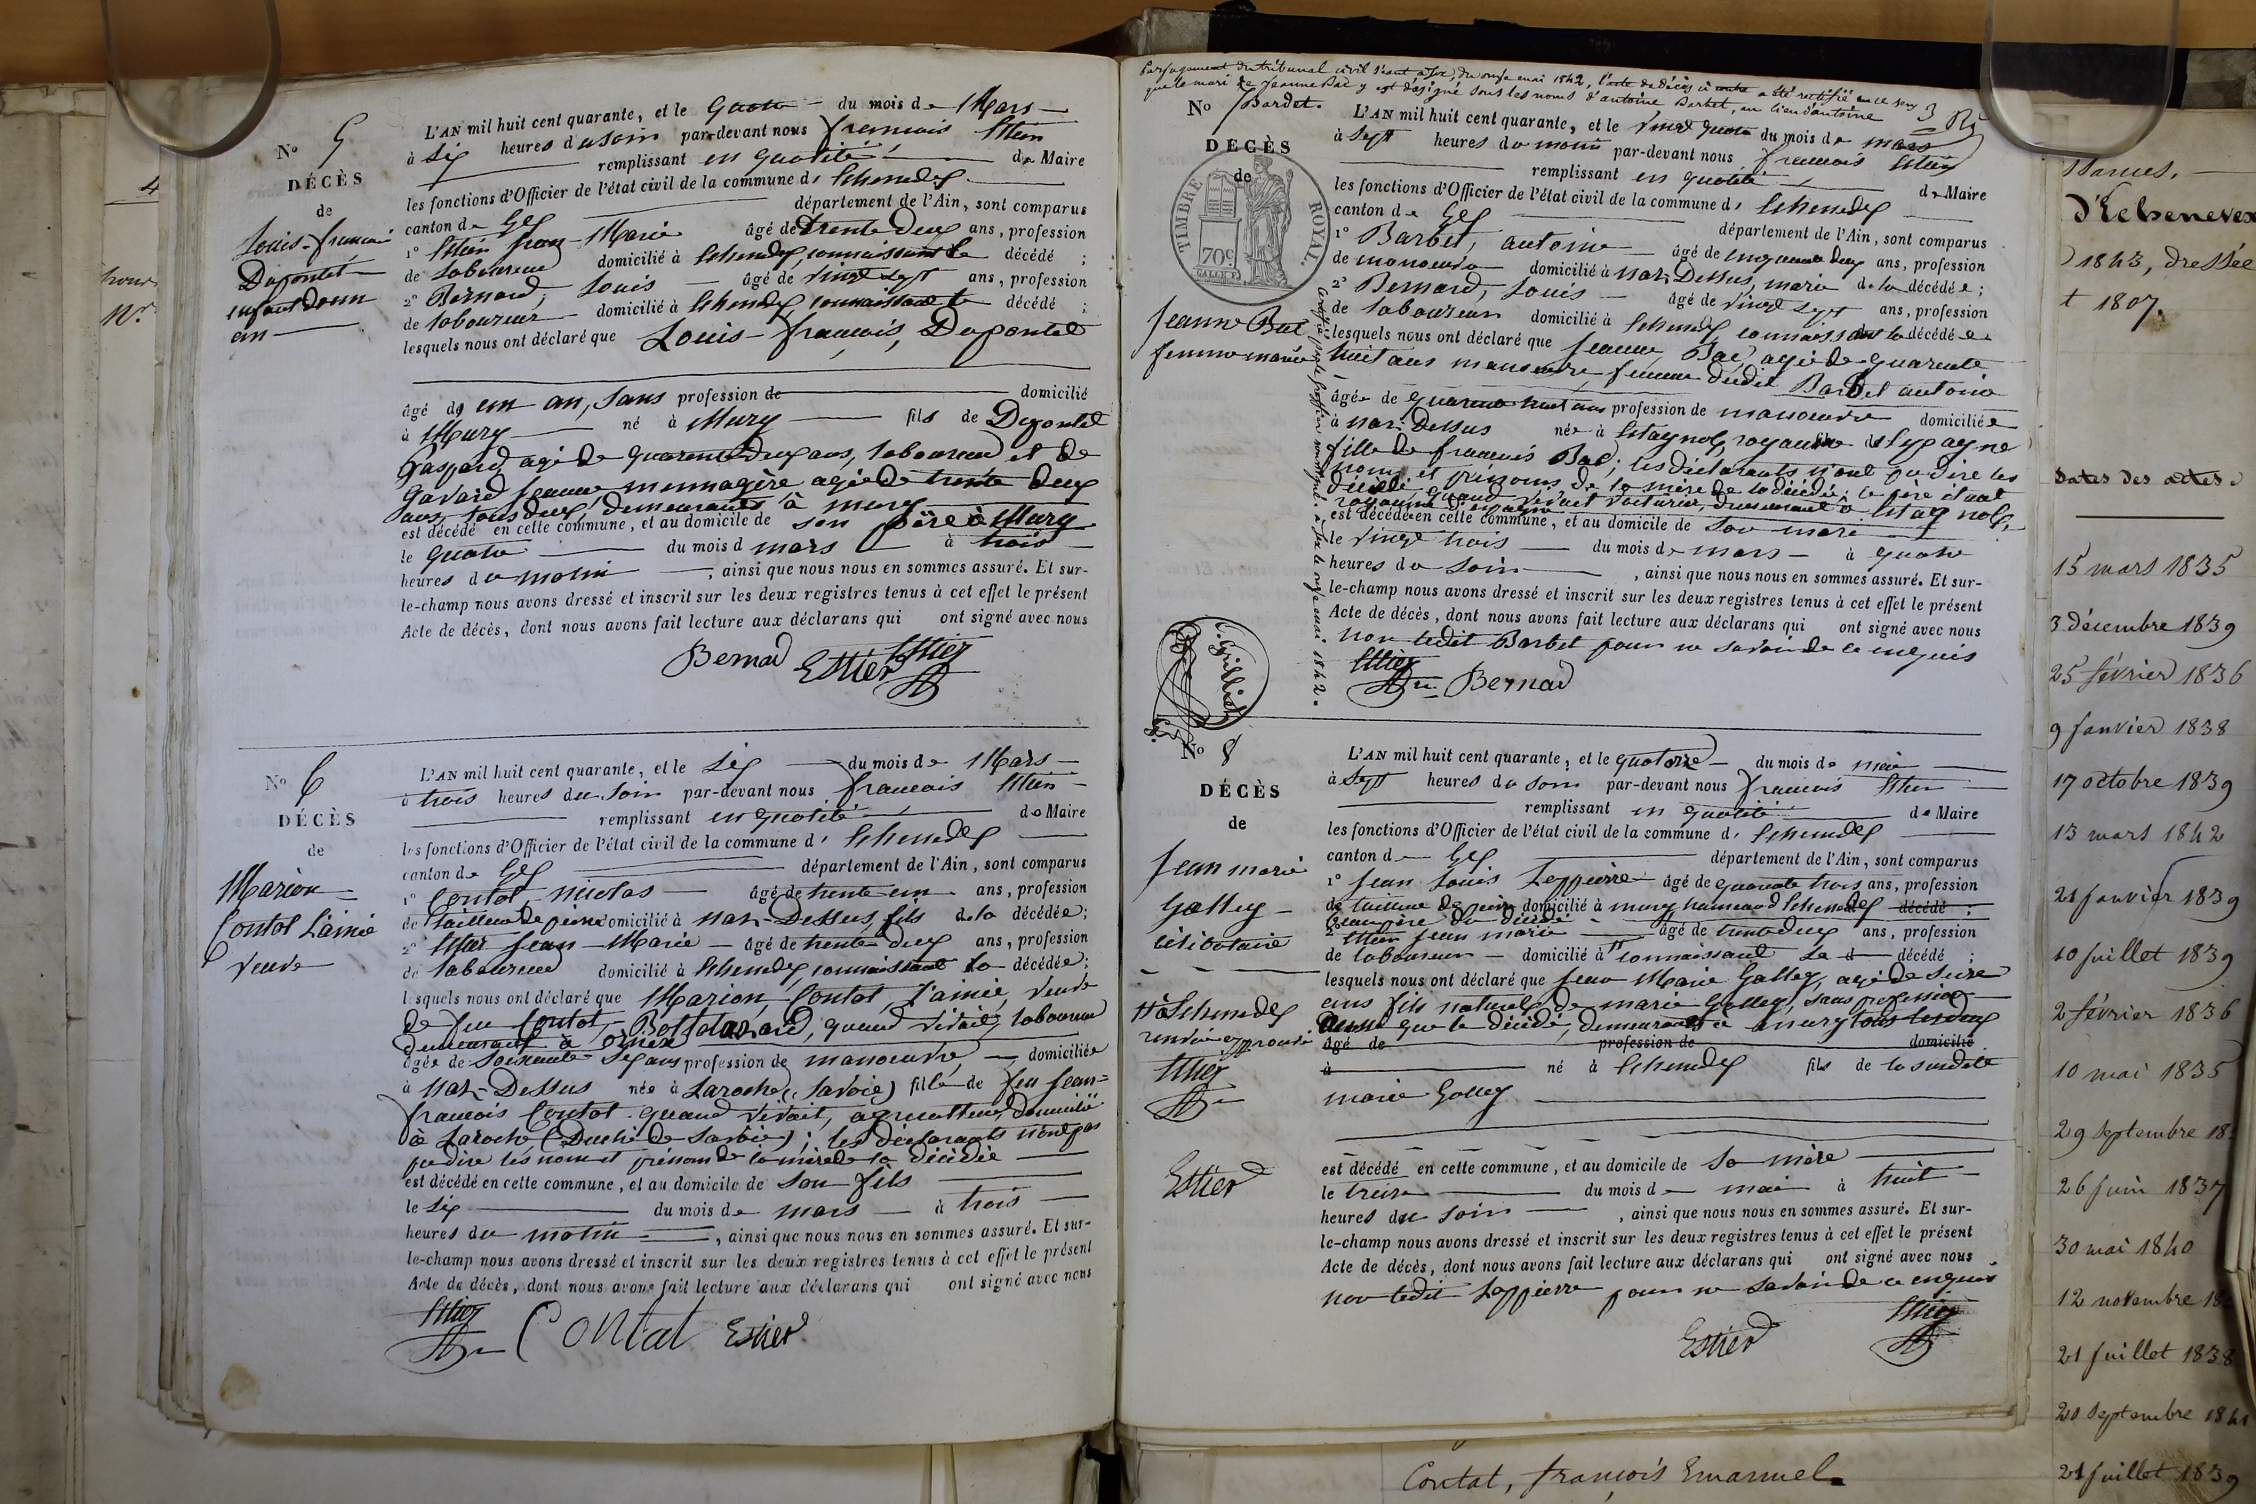 4
N° 5
DÉCÈS
de
Louis-françois
Dupontet
enfant d'un
an
L'AN mil huit cent quarante, et le quatre du mois de Mars
à six heures du soir par-devant nous françois Estier
remplissant en qualité de Maire
les fonctions d'Officier de l'état civil de la commune d'Echenevex
canton de Gex département de l'Ain, sont comparus
1° Estier Jean-Marie âgé de trente deux ans, profession
de laboureur domicilié à Echenevex, connaissant le décédé ;
2° Bernard, Louis âgé de vingt sept ans, profession
de laboureur domicilié à Echenevex, connaissant le décédé ;
lesquels nous ont déclaré que Louis-françois, Dupontet
âgé de un an, sans profession de domicilié
à Mury né à Mury fils de Dupontet
Gaspard, agé de quarante deux ans, laboureur et de
Gavard femme, mennagère agée de trente deux
ans, tous deux, demeurants à mury
est décédé en cette commune, et au domicile de son père à Mury
le quatre du mois d mars à trois
heures du matin, ainsi que nous nous en sommes assuré. Et sur-
le-champ nous avons dressé et inscrit sur les deux registres tenus à cet effet le présent
Acte de décès, dont nous avons fait lecture aux déclarans qui ont signé avec nous
Bernad Estier Estier
N° 6
DÉCÈS
de
Marion
Contat L'ainée
veuve
L'AN mil huit cent quarante, et le six du mois de Mars
à trois heures du soir par-devant nous françois Estier
remplissant en qualité de Maire
les fonctions d'Officier de l'état civil de la commune d'Echenevex
canton de Gex département de l'Ain, sont comparus
1° Contat, nicolas âgé de trente un ans, profession
de tailleur de pierre domicilié à Naz-Dessus, fils de la décédée ;
2° Estier Jean-Marie âgé de trente deux ans, profession
de laboureur domicilié à Echenevex, connaissant la décédée ;
lesquels nous ont déclaré que Marion, Contat, L'ainée, veuve
de feu Contat, quand vivait, laboureur
demeurant à ornex
âgée de soixante-six ans profession de manoeuvre domiciliée
à Naz-Dessus née à Laroche (Savoie) fille de feu Jean-
françois Contat quand vivait, agriculteur, domicilié
à Laroche (Duché de Savoie) ; les déclarants n'ont pas
pu dire les nom et prénom de la mère de la décédée
est décédé en cette commune, et au domicile de son fils
le six du mois de mars à trois
heures du matin, ainsi que nous nous en sommes assuré. Et sur-
le-champ nous avons dressé et inscrit sur les deux registres tenus à cet effet le présent
Acte de décès, dont nous avons fait lecture aux déclarans qui ont signé avec nous
Estier Contat Estier
Par jugement du tribunal civil séant à Gex, du onze mai 1842, l'acte de décès ci contre a été rectifié en ce sens
que le mari de Jeanne Bac y est désigné sous les noms d'antoine Barbet, au lieu d'antoine
Bardet.
N° 7
DÉCÈS
de
TIMBRE ROYAL.
70c
Jeanne Bac
femme mariée
L'AN mil huit cent quarante, et le vingt quatre du mois de mars
à sept heures du matin par-devant nous françois Estier
remplissant en qualité de Maire
les fonctions d'Officier de l'état civil de la commune d'Echenevex
canton de Gex département de l'Ain, sont comparus
1° Barbet, antoine âgé de cinquante deux ans, profession
de manoeuvre domicilié à Naz-Dessus, marie de la décédée ;
2° Bernard, Louis âgé de vingt sept ans, profession
de laboureur domicilié à Echenevex connaissant la décédée
lesquels nous ont déclaré que Jeanne, Bac, agée de quarante
huit ans manoeuvre, femme dudit Barbet antoine
âgée de quarante huit ans profession de manoeuvre domiciliée
à Naz-Dessus née à Estagnols, royaume d'Espagne
fille de francois Bac ; les déclarants n'ont pu dire les
noms et prénoms de la mère de la décédée ; le père était
décédé quand vivait voiturier, demeurant à Estagnols,
royaume d'Espagne
est décédée en cette commune, et au domicile de son mari
le vingt trois du mois de mars à quatre
heures du soir, ainsi que nous nous en sommes assuré. Et sur-
le-champ nous avons dressé et inscrit sur les deux registres tenus à cet effet le présent
Acte de décès, dont nous avons fait lecture aux déclarans qui ont signé avec nous
non ledit Barbet pour ne savoir de ce enquis
Estier Bernad
N° 8
DÉCÈS
de
Jean marie
Galley
célibataire
à Echenevex
renvoi approuvé
Estier
Estier
L'AN mil huit cent quarante, et le quatorze du mois de mai
à sept heures du soir par-devant nous françois Estier
remplissant en qualité de Maire
les fonctions d'Officier de l'état civil de la commune d'Echenevex
canton de Gex département de l'Ain, sont comparus
1° Jean Louis Lappierre âgé de quarante trois ans, profession
de tailleur de pierre domicilié à mury hameau d'Echenevex décédé ;
beau père du décédé
2° Estier Jean marie âgé de trente deux ans, profession
de laboureur domicilié à connaissant le décédé ;
lesquels nous ont déclaré que Jean Marie Galley, agé de seize
ans fils naturel de marie Galley, sans profession
que le décédé, demeurants à mury tous les deux
âgé de profession de domicilié
à né à Echenevex fils de la susdite
marie Galley
est décédé en cette commune, et au domicile de sa mère
le treize du mois de mai à huit
heures du soir, ainsi que nous nous en sommes assuré. Et sur-
le-champ nous avons dressé et inscrit sur les deux registres tenus à cet effet le présent
Acte de décès, dont nous avons fait lecture aux déclarans qui ont signé avec nous
non ledit Lappierre pour ne savoir de ce enquis
Estier Estier
d'Echenevex
1843, dressée
t 1807.
Dates des actes
15 mars 1835
3 décembre 1839
25 février 1836
9 janvier 1838
17 octobre 1839
13 mars 1842
21 janvier 1839
10 juillet 1839
2 février 1836
10 mai 1835
29 septembre 18
26 juin 1837
30 mai 1840
12 novembre 18
21 juillet 1838
20 septembre 1841
21 juillet 1839
Contat, françois Emanuel